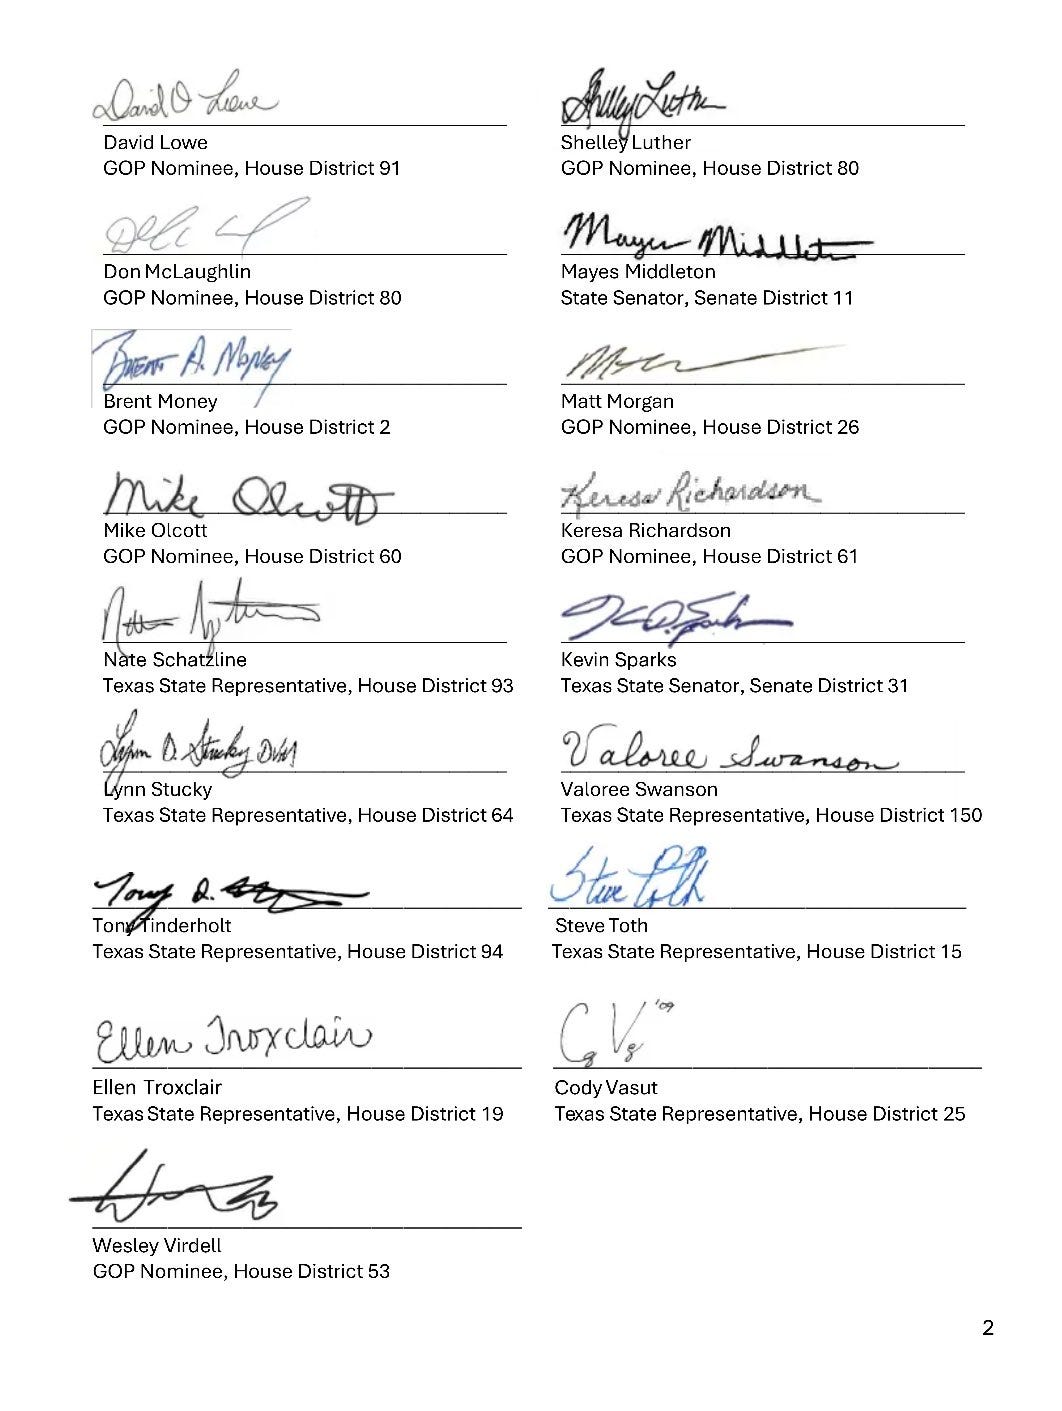 David O Lowe
David Lowe
GOP Nominee, House District 91
Shelley Luther
Shelley Luther
GOP Nominee, House District 80
Don McLaughlin
GOP Nominee, House District 80
Mayes Middleton
Mayes Middleton
State Senator, Senate District 11
Brent A. Money
Brent Money
GOP Nominee, House District 2
Matt Morgan
GOP Nominee, House District 26
Mike Olcott
Mike Olcott
GOP Nominee, House District 60
Keresa Richardson
Keresa Richardson
GOP Nominee, House District 61
Nate Schatzline
Texas State Representative, House District 93
Kevin Sparks
Texas State Senator, Senate District 31
Lynn D. Stucky DVM
Lynn Stucky
Texas State Representative, House District 64
Valoree Swanson
Valoree Swanson
Texas State Representative, House District 150
Tony D.
Tony Tinderholt
Texas State Representative, House District 94
Steve Toth
Steve Toth
Texas State Representative, House District 15
Ellen Troxclair
Ellen Troxclair
Texas State Representative, House District 19
'09
Cody Vasut
Texas State Representative, House District 25
Wesley Virdell
GOP Nominee, House District 53
2